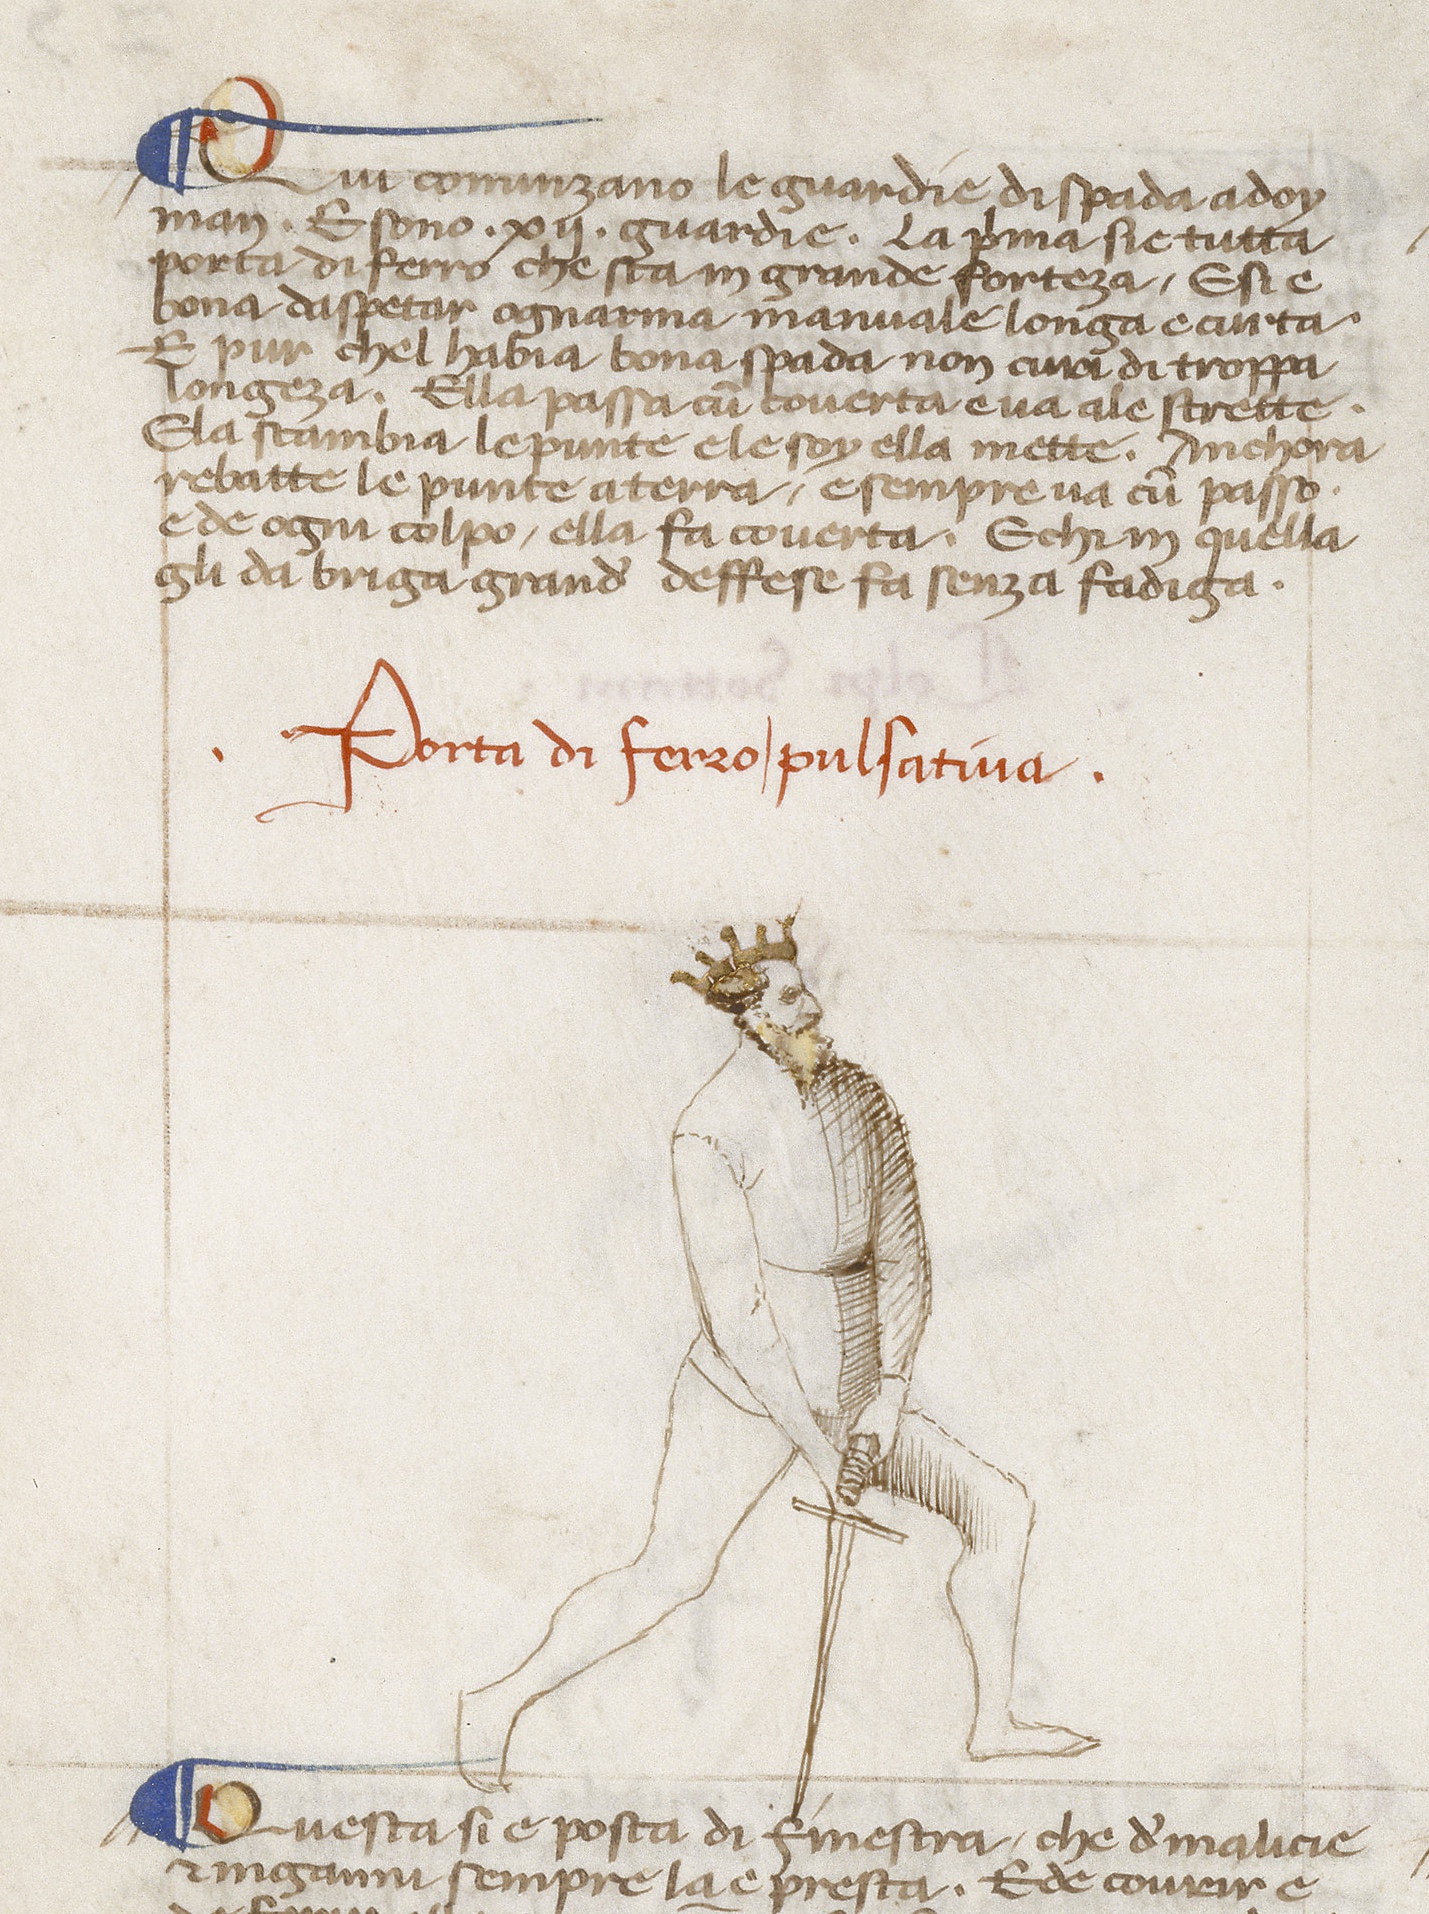 Qui cominzano le guardie di spada a doy
man. E sono .xij. guardie. La p̃ma si e tutta
porta di ferro che sta in grande forteza, E si e
bona daspetar ognarma manuale longa e curta.
E pur chel habia bona spada non cura di troppa
longeza. Ella passa cũ couerta e ua ale strette.
E la scambia le punte e le soy ella mette. Anchora
rebatte le punte a terra, e sempre ua cũ passo.
e de ogni colpo, ella fa couerta. E chi in quella
gli da briga grand' deffese fa senza fadiga.
. Porta di ferro pulsativa .
Questa si e posta di finestra, che d' malicie
e inganni sempre la e presta. E de courir e